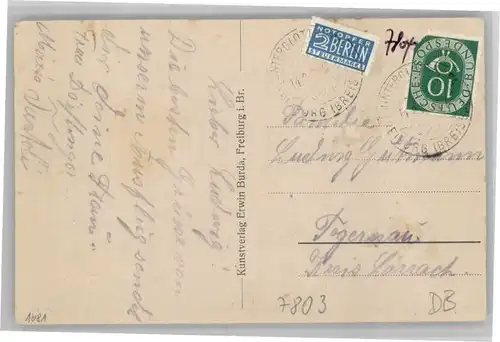 Lieber Ludwig!
Die besten Grüsse von
unserem Ausflug sendet
Dir Deine Tfam.
Frau Döflinger
Maria
Kunstverlag Erwin Burda, Freiburg i. Br.
NOTOPFER
2 BERLIN
STEUERMARKE
DEUTSCHE BUNDESPOST
10
Familie
Ludwig Gutmann
Tegernau
Kreis Lörrach.
7803
DB
1421